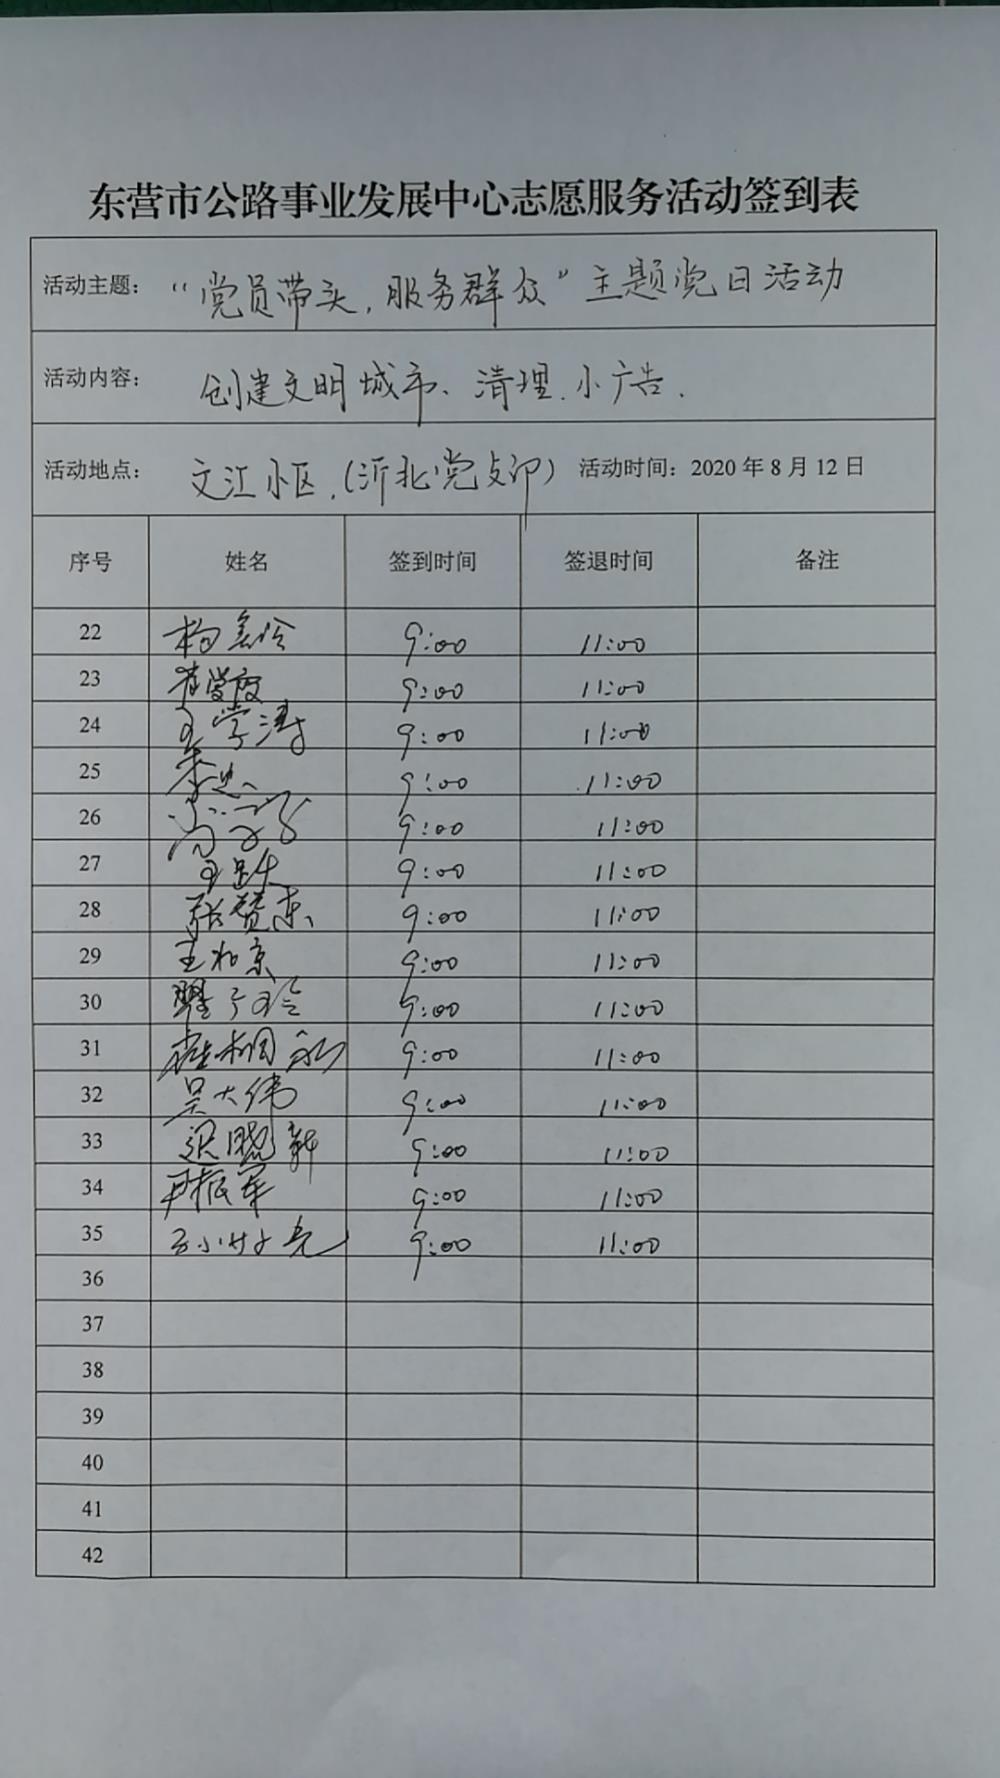 东营市公路事业发展中心志愿服务活动签到表
活动主题： “党员带头，服务群众”主题党日活动
活动内容： 创建文明城市、清理小广告.
活动地点： 文江小区.（沂北党支部） 活动时间：2020 年 8 月 12 日
序号 姓名 签到时间 签退时间 备注
22 9:00 11:00
23 9:00 11:00
24 王学涛 9:00 11:00
25 9:00 11:00
26 9:00 11:00
27 王跃 9:00 11:00
28 张赞东 9:00 11:00
29 王北京 9:00 11:00
30 9:00 11:00
31 9:00 11:00
32 吴大伟 9:00 11:00
33 梁晓新 9:00 11:00
34 尹振军 9:00 11:00
35 9:00 11:00
36
37
38
39
40
41
42